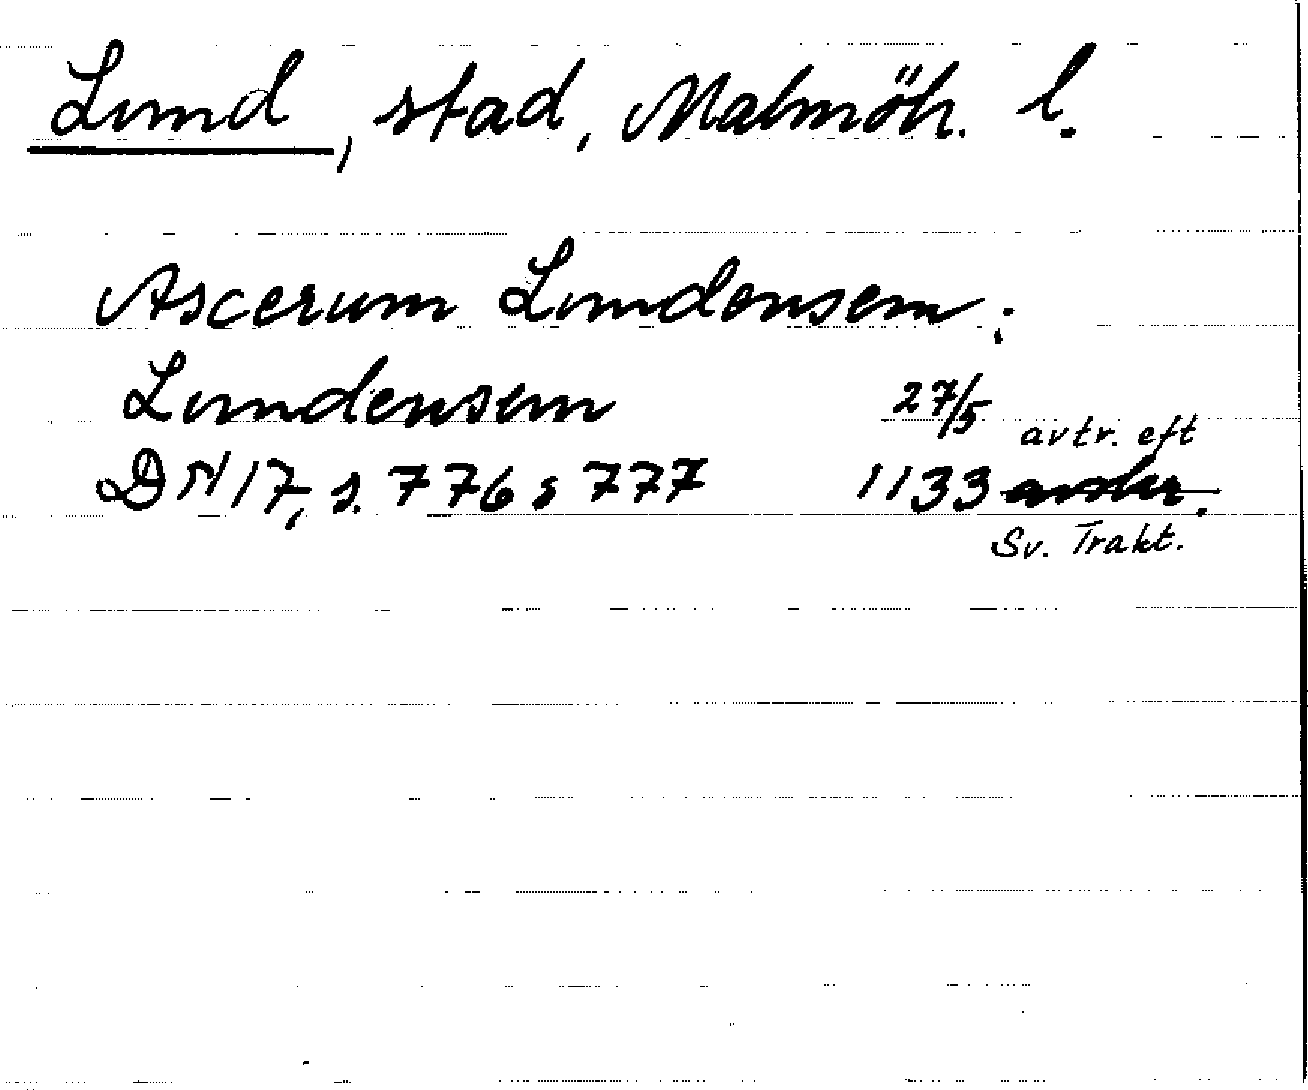 Lund, stad, Malmöh. l.
Ascerum Lundensem;
Lundensem 27/5
avtr. eft
DN 17, s. 776 s 777 1133 avskr.
Sv. Trakt.